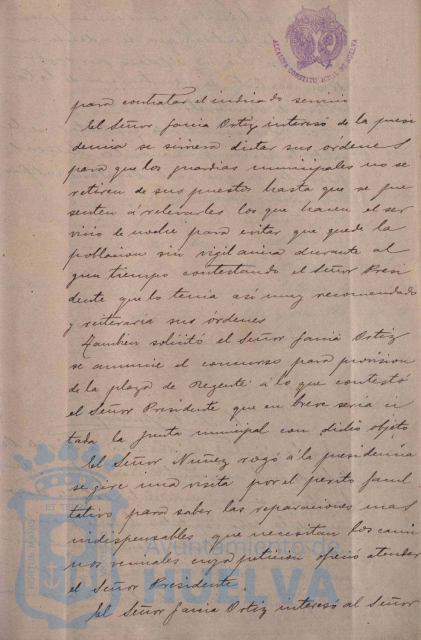 ALCALDIA CONSTITUCIONAL DE HUELVA
para contratar el indicado servicio
El Señor García Ortiz interesó de la presi
dencia se sirviera dictar sus órdenes
para que los guardias municipales no se
retiren de sus puestos hasta que se pre
senten á relevarles los que hacen el ser
vicio de noche para evitar que quede la
poblacion sin vigilancia durante al
gun tiempo contestando el Señor Presi
dente que lo tenia así muy recomendado
y reiteraria sus órdenes
Tambien solicitó el Señor García Ortiz
se anuncie el concurso para provision
de la plaza de Regente á lo que contestó
el Señor Presidente que en breve seria ci
tada la junta municipal con dicho objeto
El Señor Nuñez rogó á la presidencia
se gire una visita por el perito facul
tativo para saber las reparaciones mas
indispensables que necesitan los cami
nos vecinales cuya peticion ofreció atender
el Señor Presidente.
El Señor García Ortiz interesó al Señor
Ayuntamiento de
HUELVA